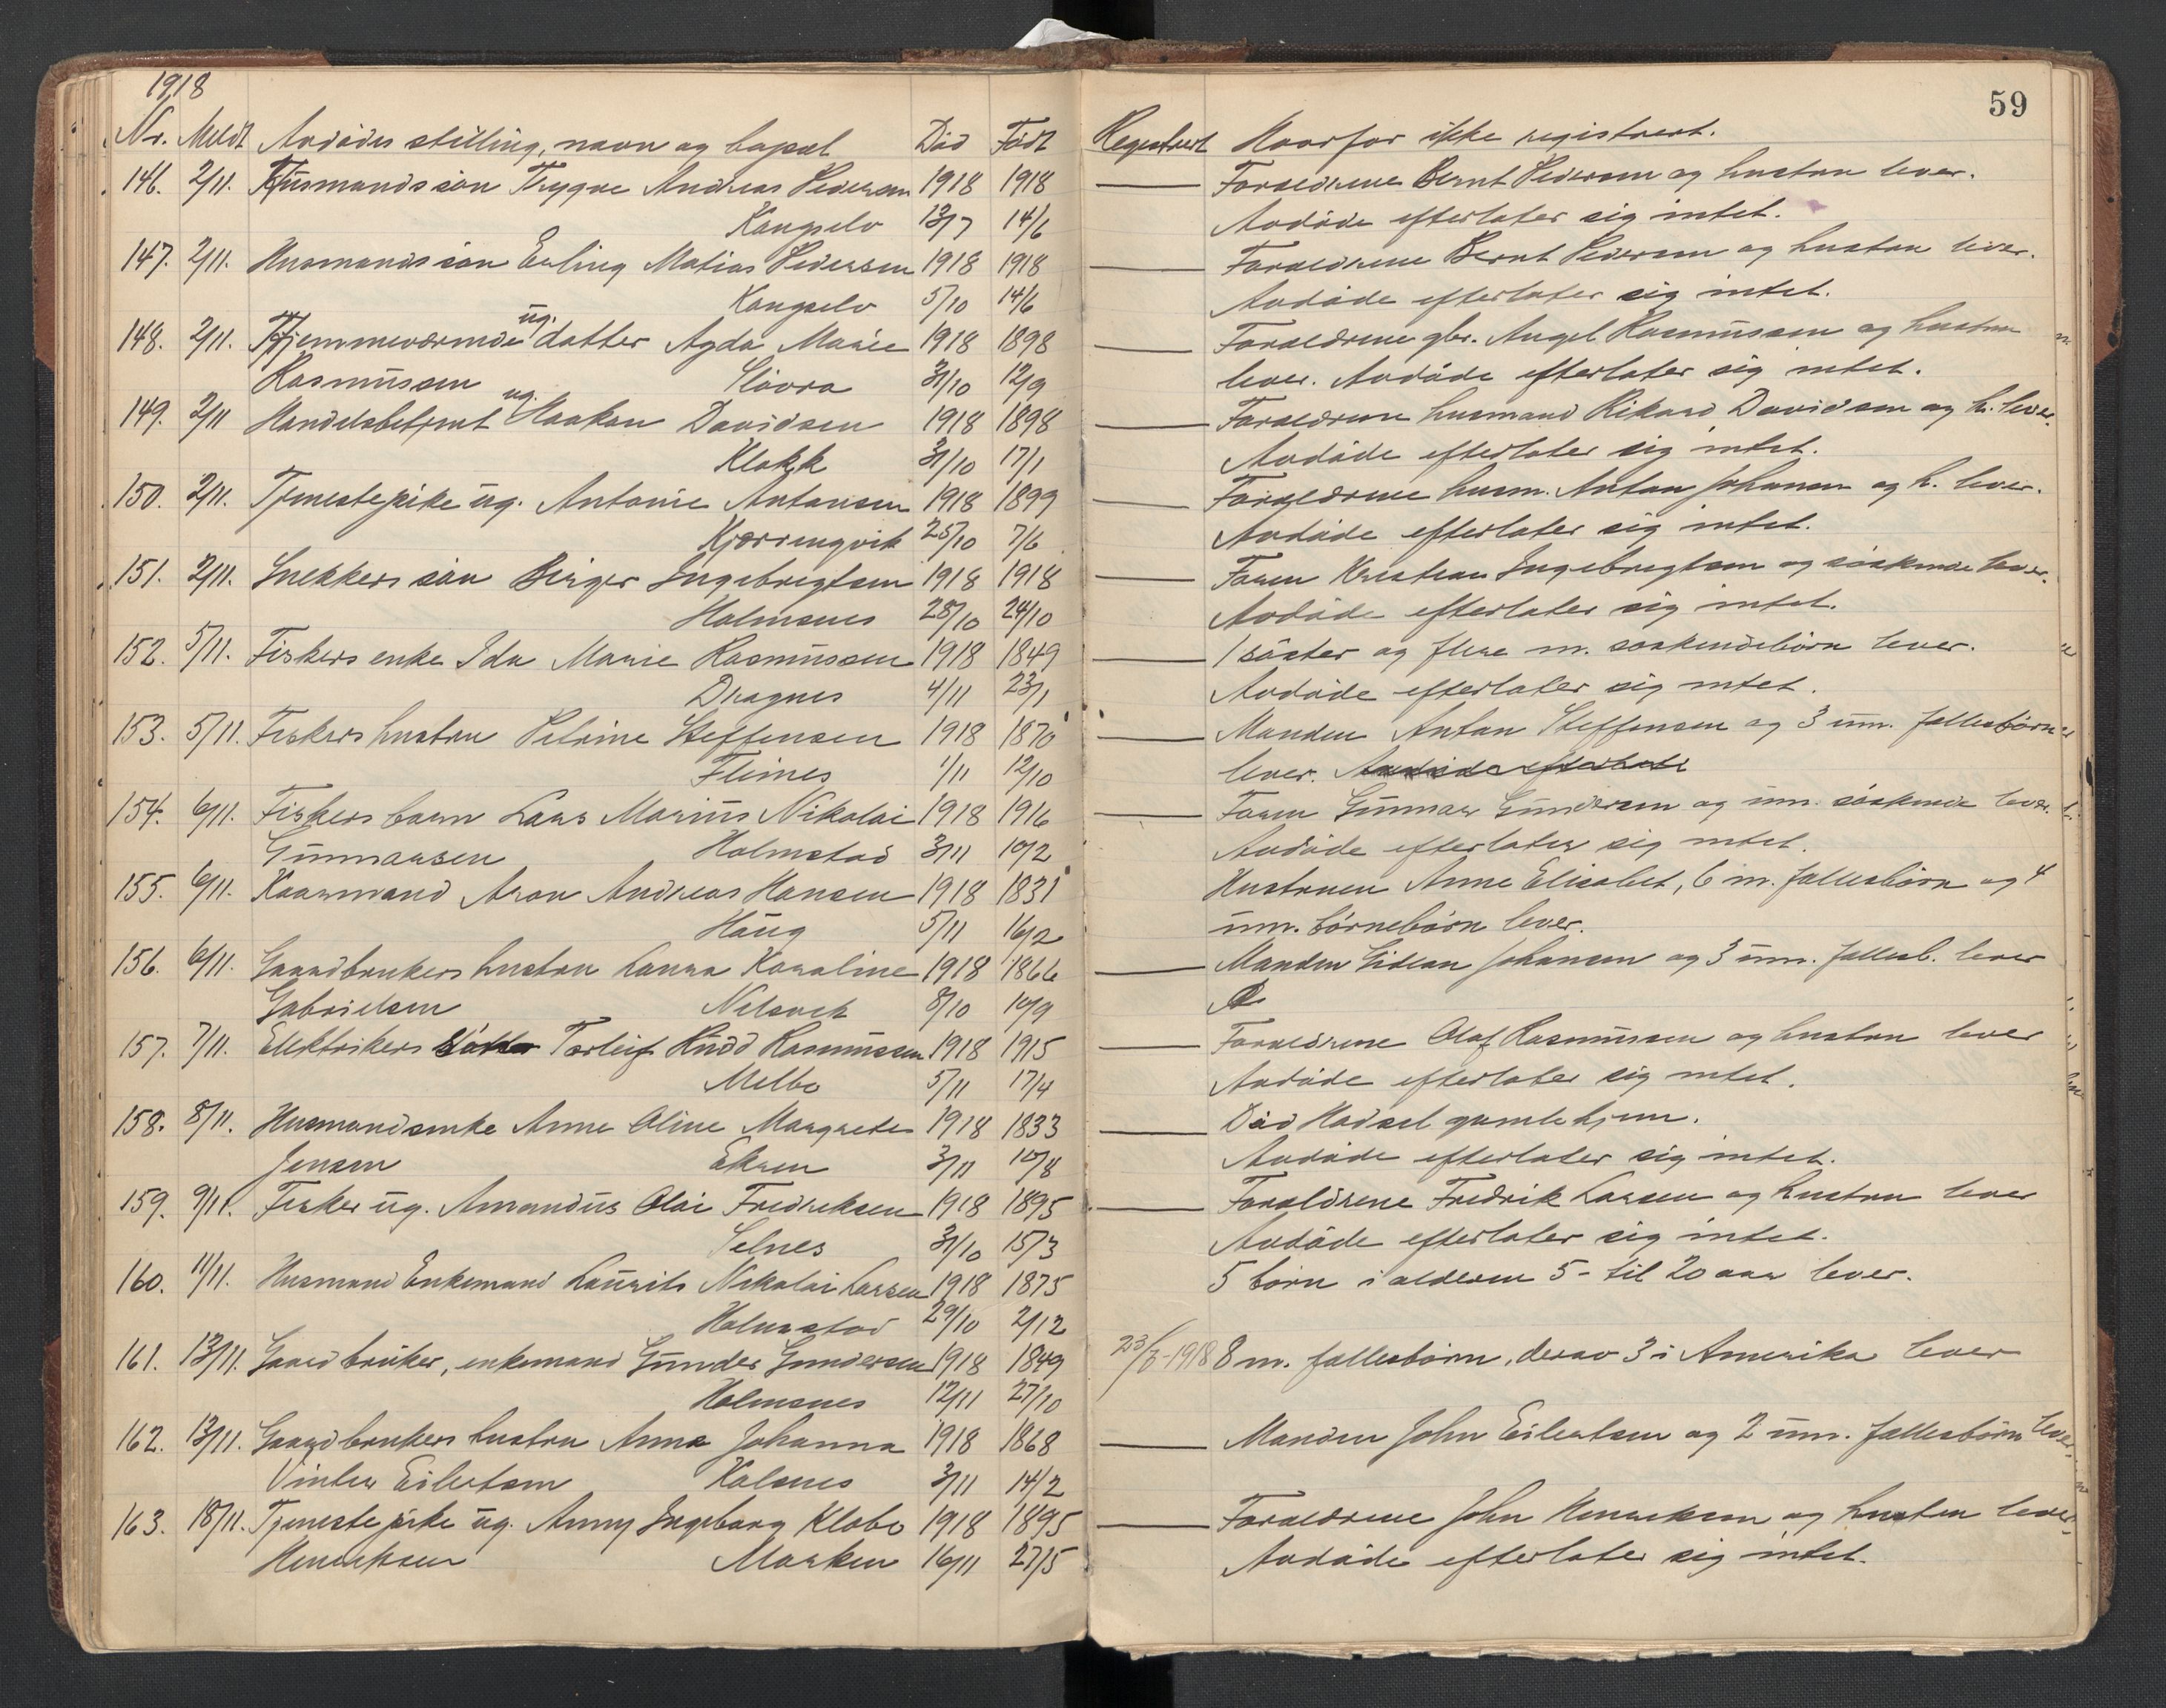 1918
59
Nr. Meldt Avdödes stilling, navn og bopæl Död Födt Registrert Hvorfor ikke registrert.
146. 2/11. Husmands sön Trygve Andreas Pedersen 1918 1918 Forældrene Bernt Pedersen og hustru lever.
Kongselv 13/7 14/6 Avdöde efterlater sig intet.
147. 2/11. Husmands sön Erling Matias Pedersen 1918 1918 Forældrene Bernt Pedersen og hustru lever.
Kongselv 5/10 14/6 Avdöde efterlater sig intet.
148. 2/11. Hjemmeværende ug. datter Agda Marie 1918 1898 Forældrene gbr. Angel Rasmussen og hustru
Rasmussen Slövra 31/10 12/9 lever. Avdöde efterlater sig intet.
149. 2/11 Handelsbetjent ug. Haakon Davidsen 1918 1898 Forældrene husmand Rikard Davidsen og h. lever.
Klakk 31/10 17/1 Avdöde efterlater sig intet.
150. 2/11. Tjenestepike ug. Antonie Antonsen 1918 1899 Forældrene husm. Anton Johansen og h. lever.
Kjærringvik 25/10 7/6 Avdöde efterlater sig intet.
151. 2/11. Snekkers sön Birger Ingebrigtsen 1918 1918 Faren Kristian Ingebrigtsen og söskende lever.
Holmsnes 28/10 24/10 Avdöde efterlater sig intet.
152. 5/11. Fiskers enke Ida Marie Rasmussen 1918 1849 1 söster og flere m. söskendebörn lever.
Dragnes 4/11 23/1 Avdöde efterlater sig intet.
153. 5/11. Fiskers hustru Petrine Steffensen 1918 1870 Manden Anton Steffensen og 3 um. fællesbörn
Fleines 1/11 12/10 lever. Avdöde efterlate
154. 6/11. Fiskers barn Lars Marius Nikolai 1918 1916 Faren Gunnar Gundersen og um. söskende lever.
Gunnarsen Holmstad 3/11 10/2 Avdöde efterlater sig intet.
155. 6/11. Kaarmand Aron Andreas Hansen 1918 1831 Hustruen Anne Elisabet, 6 m. fællesbörn og 4
Haug 5/11 16/2 um. börnebörn lever.
156. 6/11. Gaardbrukers hustru Laura Karoline 1918 1866 Manden Gideon Johansen og 3 um. fællesb. lever
Gabrielsen 8/10 10/9 A
157. 7/11. Elektrikers Torleif Knud Rasmussen 1918 1915 Forældrene Olaf Rasmussen og hustru lever
Melbo 5/11 17/4 Avdöde efterlater sig intet.
158. 8/11. Husmandsenke Anne Oline Margrete 1918 1833 Död Hadsel gamlehjem.
Jensen Ekren 3/11 10/8 Avdöde efterlater sig intet.
159. 9/11. Fisker ug. Amandus Olai Fredriksen 1918 1895 Forældrene Fredrik Larsen og hustru lever
Selnes 31/10 15/3 Avdöde efterlater sig intet.
160. 11/11. Husmand Enkemand Laurits Nikolai Larsen 1918 1875 5 börn i alderen 5- til 20 aar lever.
Holmstad 29/10 2/12
161. 13/11. Gaardbruker, enkemand Gunder Gundersen 1918 1849 8 m. fællesbörn, derav 3 i Amerika lever
Holmsnes 12/11 27/10
162. 13/11. Gaardbrukers hustru Anna Johanna 1918 1868 Manden John Eilertsen og 2 um. fællesbörn lever.
Vinter Eilertsen Kalsnes 3/11 14/2
163. 18/11. Tjenestepike ug. Anny Ingeborg Klobo 1918 1895 Forældrene John Henriksen og hustru lever.
Henriksen Marken 16/11 27/5 Avdöde efterlater sig intet.